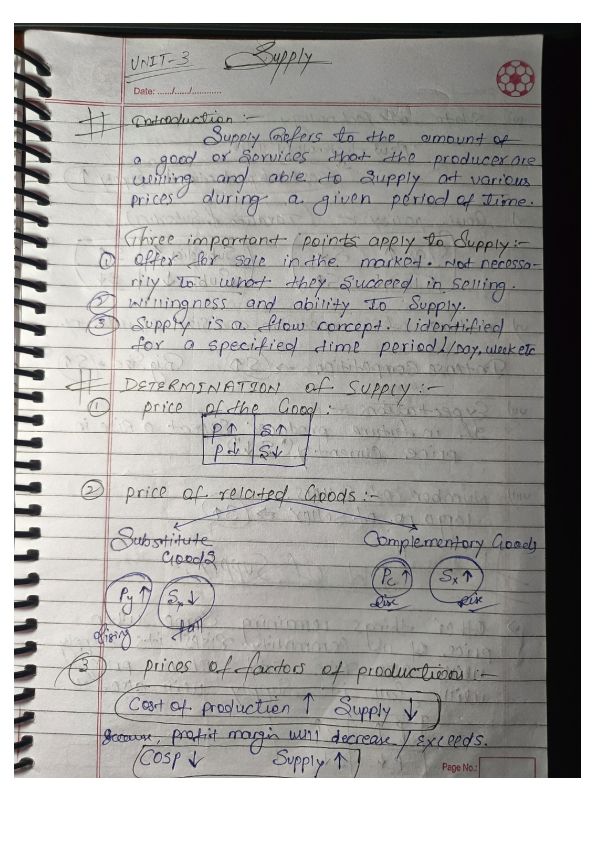 UNIT-3 Supply
Date: ....../....../............
# Introduction :-
Supply Refers to the amount of
a good or Services that the producer are
willing and able to Supply at various
prices during a given period of time.
Three important points apply to Supply:-
① offer for sale in the market. Not necessa-
rily to what they Succeed in selling.
② Willingness and ability To Supply.
③ Supply is a flow concept. (identified
for a specified time period)/Day, week etc
# DETERMINATION of SUPPLY :-
① price of the Good :
P↑ S↑
P↓ S↓
② price of related Goods :-
Substitute Complementory Goods
Goods
Py↑ Sx↓ Pc↑ Sx↑
rising fall Rise Rise
③ prices of factors of productions :-
Cost of production ↑ Supply ↓
Because, profit margin will decrease / exceeds.
COSP ↓ Supply ↑
Page No.: